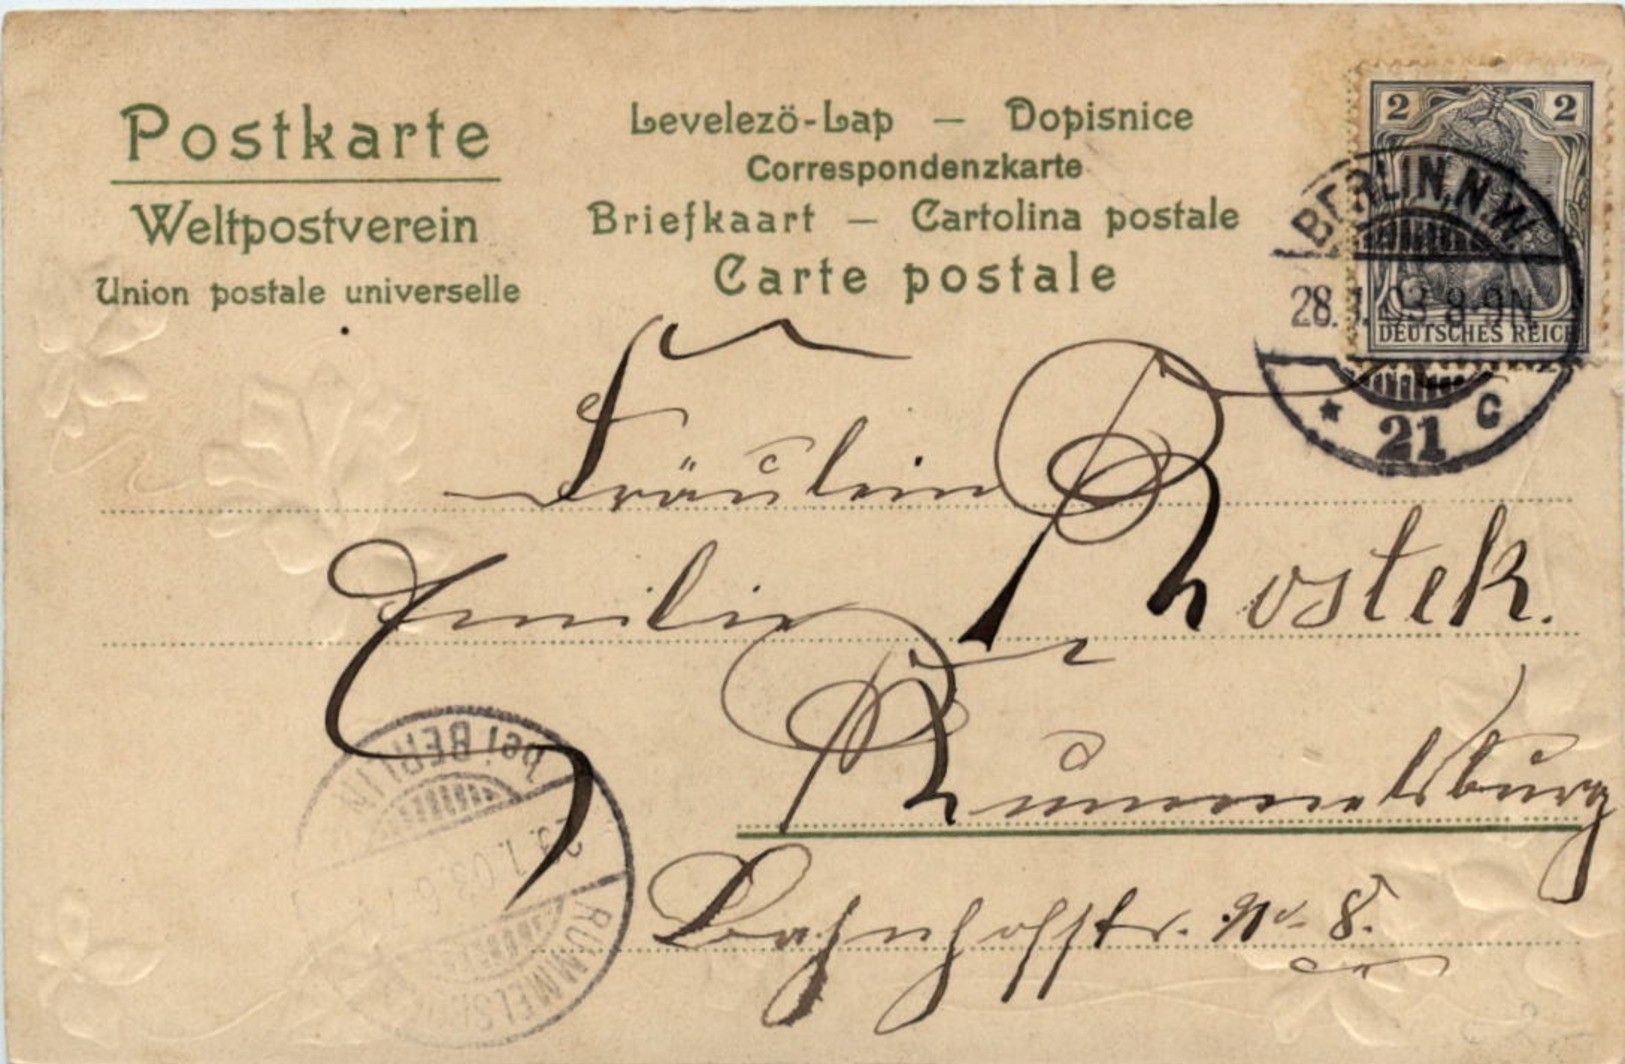 Postkarte
Weltpostverein
Union postale universelle
Levelezö-Lap — Dopisnice
Correspondenzkarte
Briefkaart — Cartolina postale
Carte postale
2 2
DEUTSCHES REICH
BERLIN, N.W.
28.1.03 8-9N.
* 21 c
Fräulein
Emilie Rostek.
Rummelsburg
Bahnhofstr. No 8.
RUMMELSBURG
bei BERLIN
29.1.03. 6-7